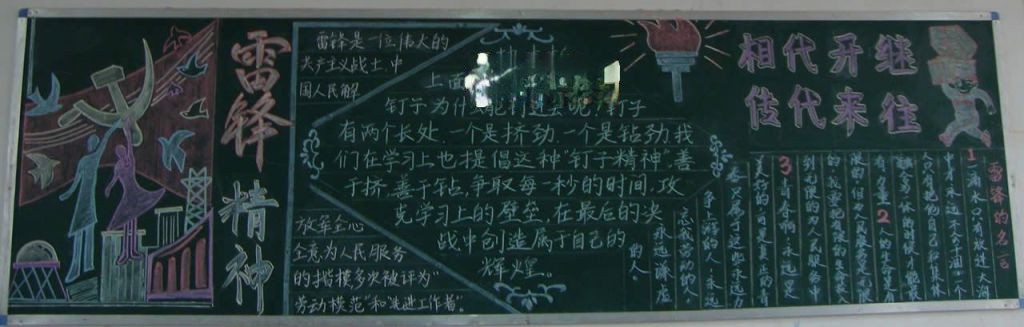 雷锋精神
雷锋是一位伟大的
共产主义战士,中
国人民解
放军全心
全意为人民服务
的揩模多次被评为"
劳动模范"和"先进工作者"。
上面
钉子为什
钉子
有两个长处,一个是挤劲,一个是钻劲,我
们在学习上也提倡这种"钉子精神",善
于挤,善于钻,争取每一秒的时间,攻
克学习上的壁垒,在最后的决
战中创造属于自己的
辉煌。
相代开继
传代来往
雷锋的名言
1一滴水只有放进大海
中才永远不会干涸,一个
人只有把他自己和集体
融合一体的时候才能最
有力量 2人的生命是有
限的,但为人民服务是无限
的,我要把有限的生命投入
到无限的为人民服务中
3青春啊,永远是
美好的,可是真正的青
春,只属于这些永远力
争上游的人,永远
忘我劳动的人,
永远谦虚
的人。